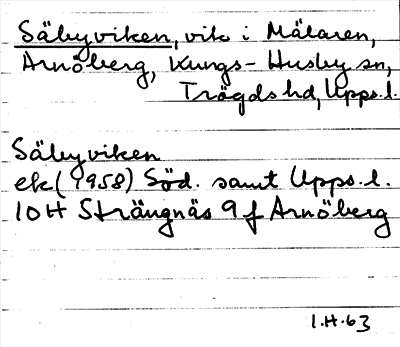 Säbyviken, vik i Mälaren,
Arnöberg, Kungs-Husby sn,
Trögds hd, Upps.l.
Säbyviken
ek (1958) Söd. samt Upps.l.
10H Strängnäs 9 f Arnöberg
1.H.63